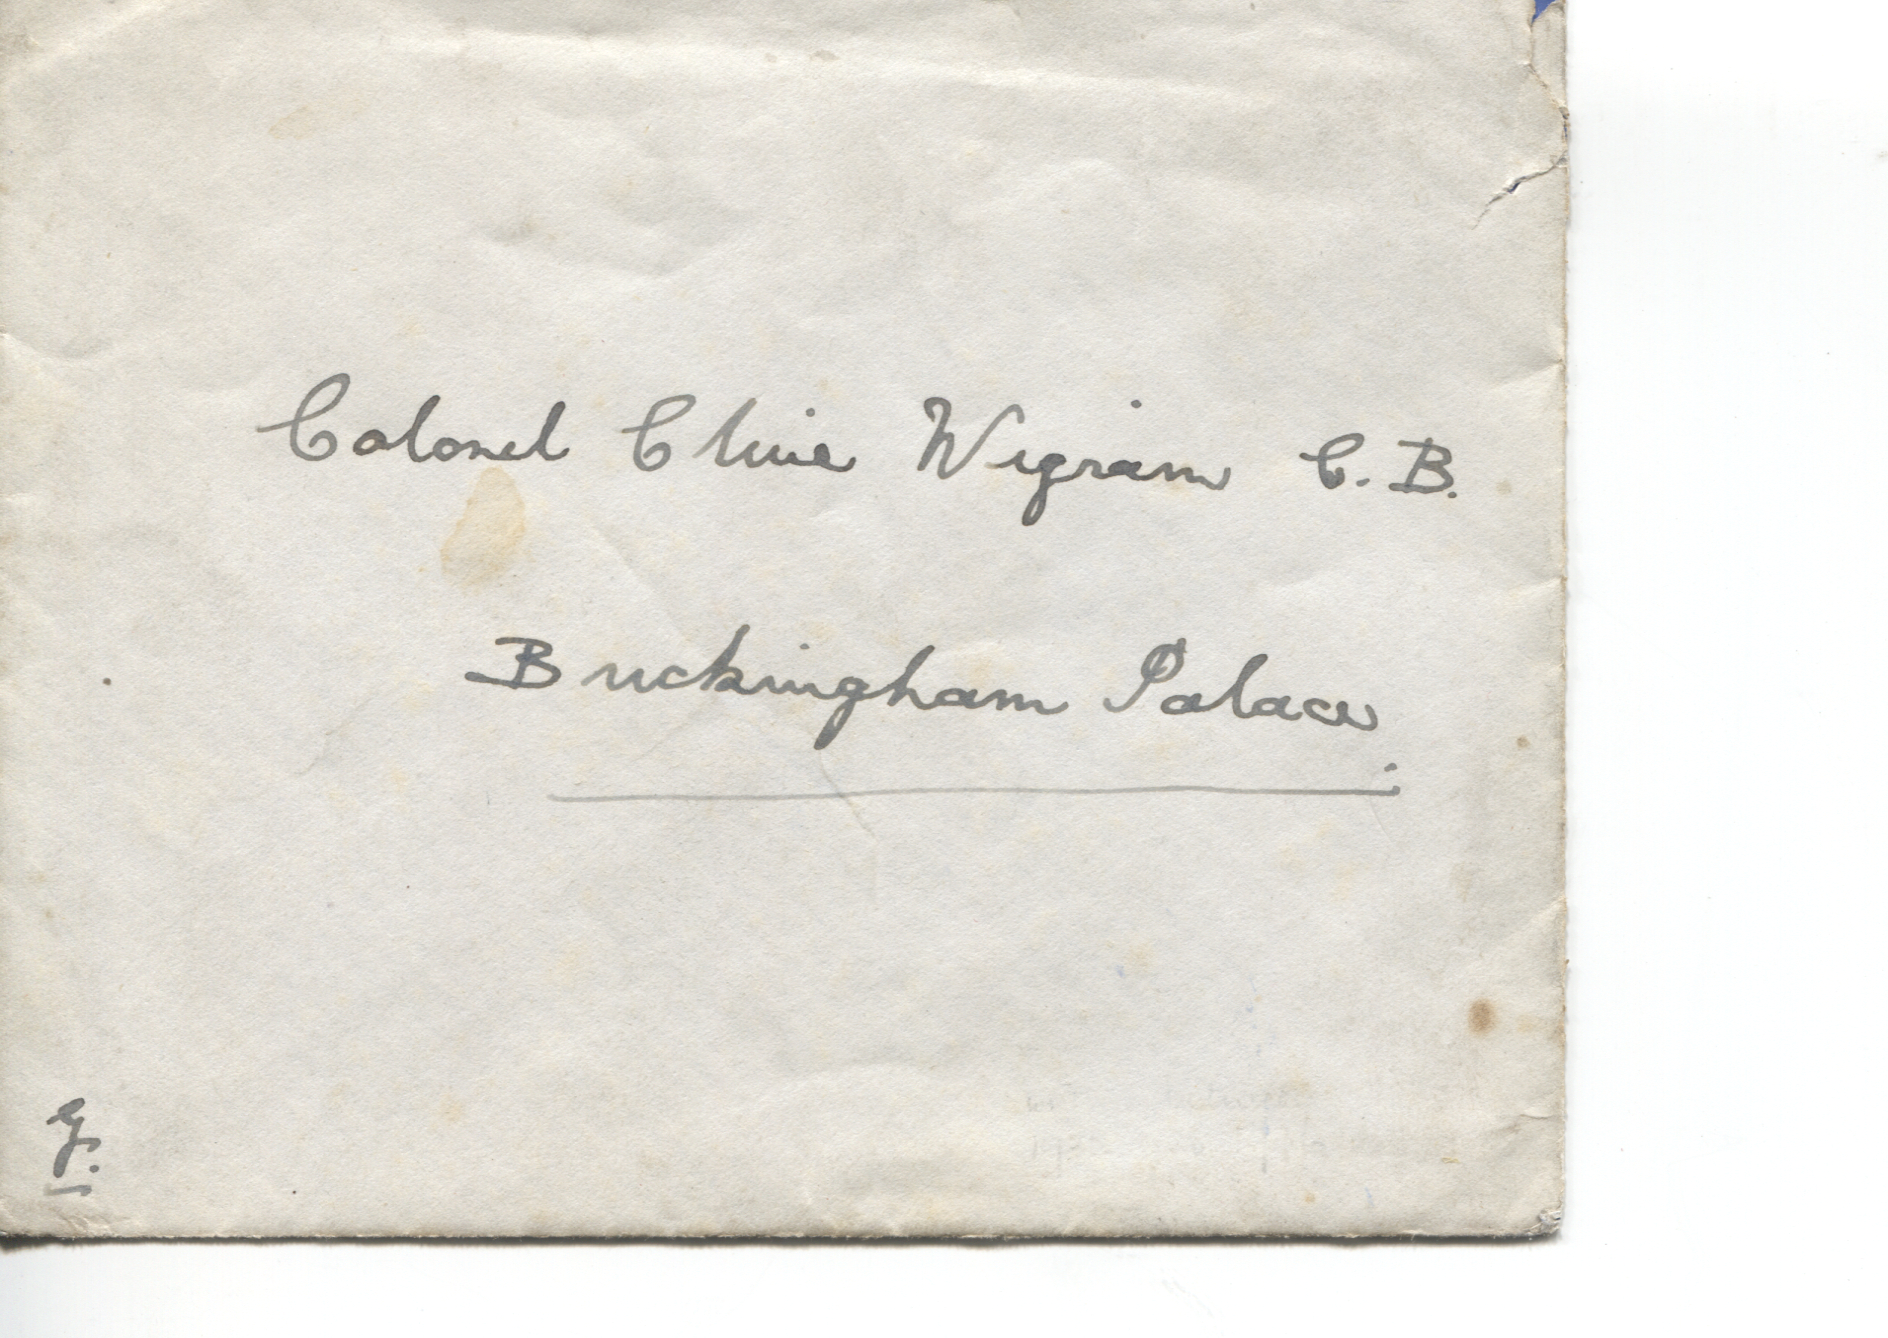 Colonel Clive Wigram C.B.
Buckingham Palace.
G.